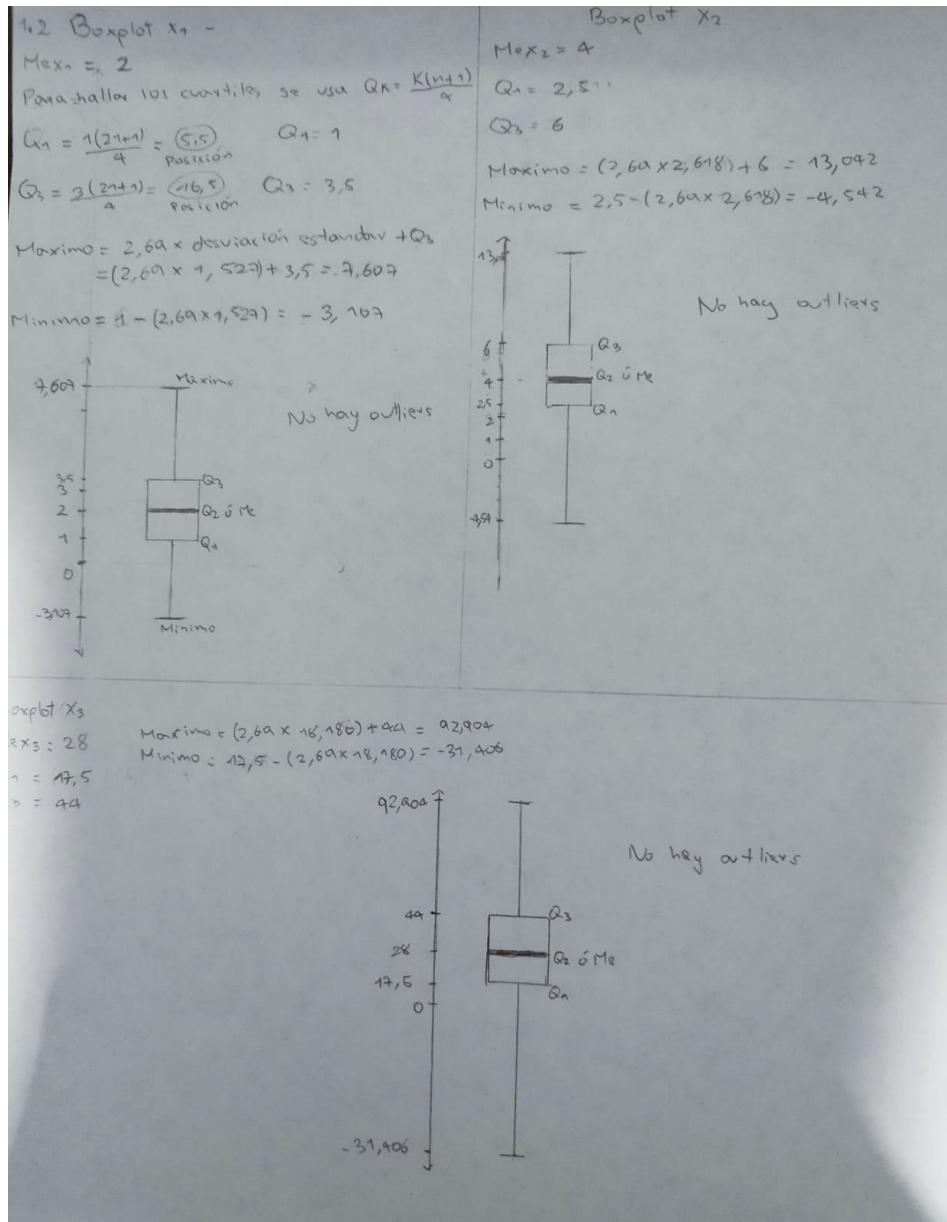 1.2 Boxplot x₁ -
Mex₁ = 2
Para hallar los cuartiles se usa QK = K(n+1)/4
Q₁ = 1(21+1)/4 = 5,5 Q₁ = 1
posición
Q₃ = 3(21+1)/4 = 16,5 Q₃ = 3,5
posición
Maximo = 2,69 x desviación estandar + Q₃
= (2,69 x 1,527) + 3,5 = 7,607
Minimo = 1 - (2,69 x 1,527) = - 3,107
7,607
Máximo
No hay outliers
3,5
3
2
1
0
-3,107
Q₃
Q₂ ó Me
Q₁
Minimo
Boxplot x₂
Mex₂ = 4
Q₁ = 2,5
Q₃ = 6
Maximo = (2,69 x 2,618) + 6 = 13,042
Minimo = 2,5 - (2,69 x 2,618) = -4,542
13,04
No hay outliers
6
4
2,5
2
1
0
-4,54
Q₃
Q₂ ó Me
Q₁
oxplot X₃
ex₃ : 28
= 17,5
= 44
Maximo = (2,69 x 18,180) + 44 = 92,904
Minimo : 17,5 - (2,69 x 18,180) = -31,406
92,904
No hay outliers
44
28
17,5
0
-31,406
Q₃
Q₂ ó Me
Q₁